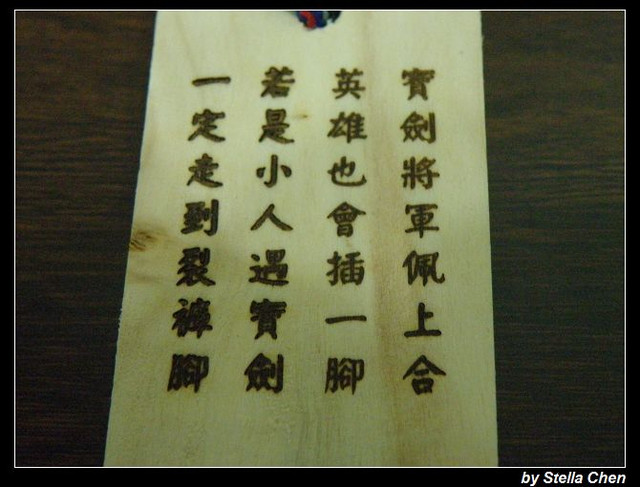 寶劍將軍佩上合
英雄也會插一腳
若是小人遇寶劍
一定走到裂褲腳
by Stella Chen